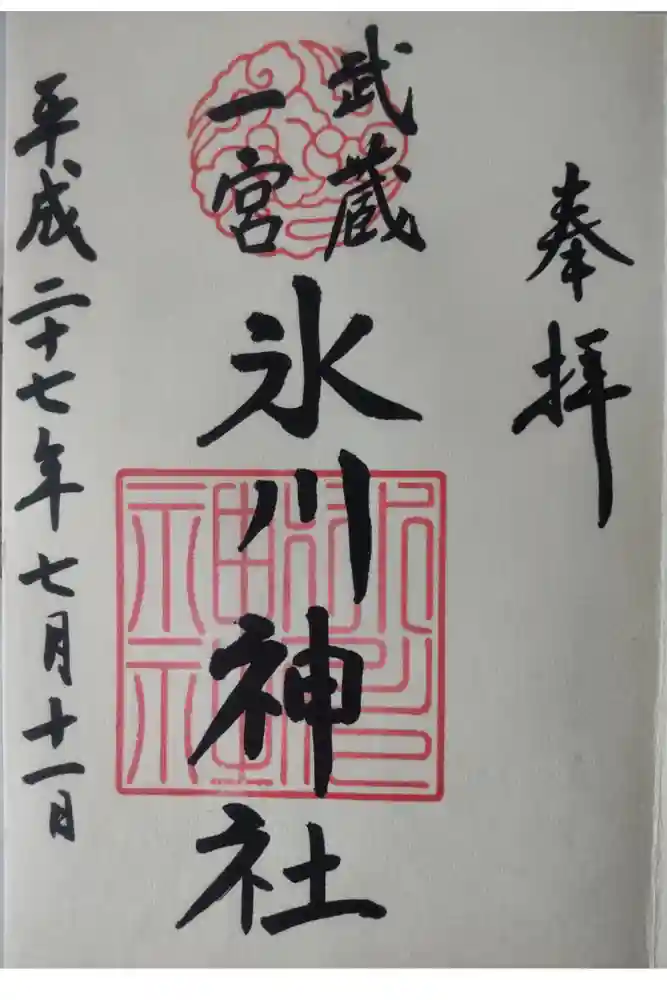 奉拝
武蔵
一宮
氷川神社
平成二十七年七月十一日